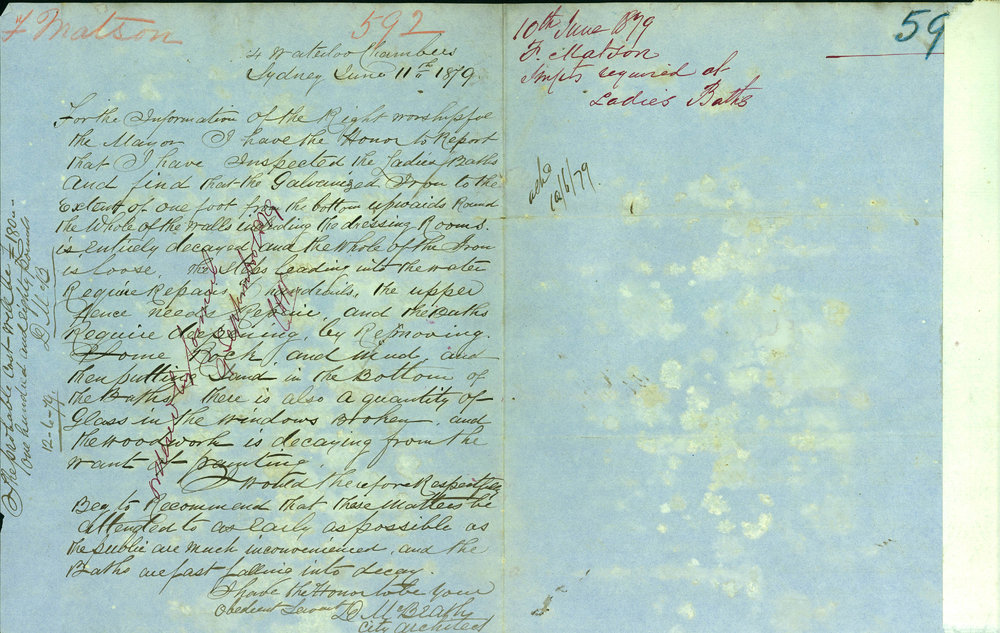 F Matson
592
4 Waterloo Chambers
Sydney June 11th 1879
For the Information of the Right worshipful
the Mayor I have the Honor to Report
that I have Inspected the Ladies Baths
and find that the Galvanized Iron to the
Extent of one foot from the bottom upwards Round
the Whole of the walls including the dressing Rooms.
is Entirely decayed and the whole of the Iron
is loose. the Steps leading into the water
Require Repairs & handrails, the upper
fence needs and the Baths
Require deepening, by Removing.
Some Rock, and Mud, and
then putting Sand in the Bottom of
the Baths, there is also a quantity of
Glass in the windows Broken, and
the woodwork is decaying from the
want of painting.
I would therefore Respectfully
Beg to Recommend that these Matters be
attended to as Early as possible as
the public are much inconvenienced, and the
Baths are fast falling into decay.
I have the Honor to be Your
obedient Servant D McBeath
City Architect
The probable cost will be £180..
One hundred and eighty pounds
D McB
12-6-79
10th June 1879
F. Matson
Impts required at
Ladies Baths
59
10/6/79.